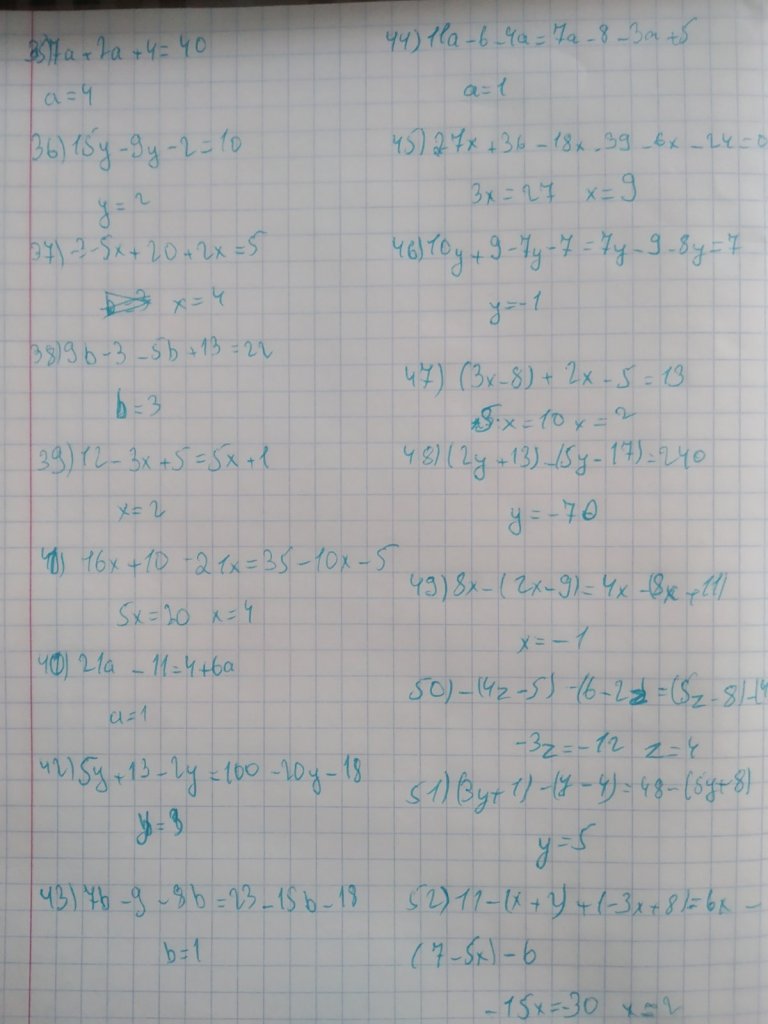 35) 7a + 2a + 4 = 40
a = 4
36) 15y - 9y - 2 = 10
y = 2
37) -3 - 5x + 20 + 2x = 5
x = 4
38) 9b - 3 - 5b + 13 = 22
b = 3
39) 12 - 3x + 5 = 5x + 1
x = 2
16x + 10 - 21x = 35 - 10x - 5
5x = 20 x = 4
21a - 11 = 4 + 6a
a = 1
42) 5y + 13 - 2y = 100 - 20y - 18
y = 3
43) 7b - 9 - 8b = 23 - 15b - 18
b = 1
44) 11a - 6 - 4a = 7a - 8 - 3a + 5
a = 1
45) 27x + 36 - 18x - 39 - 6x - 24 = 0
3x = 27 x = 9
46) 10y + 9 - 7y - 7 = 7y - 9 - 8y = 7
y = -1
47) (3x - 8) + 2x - 5 = 13
5x = 10 x = 2
48) (2y + 13) - (5y - 17) = 240
y = -70
49) 8x - (2x - 9) = 4x - (8x + 11)
x = -1
50) -(4z - 5) - (6 - 2z = (5z - 8) - (4
-3z = -12 z = 4
51) (3y + 1) - (7 - 4) = 48 - (5y + 8)
y = 5
52) 11 - (x + 2) + (-3x + 8) = 6x -
(7 - 5x) - 6
-15x = -30 x = 2